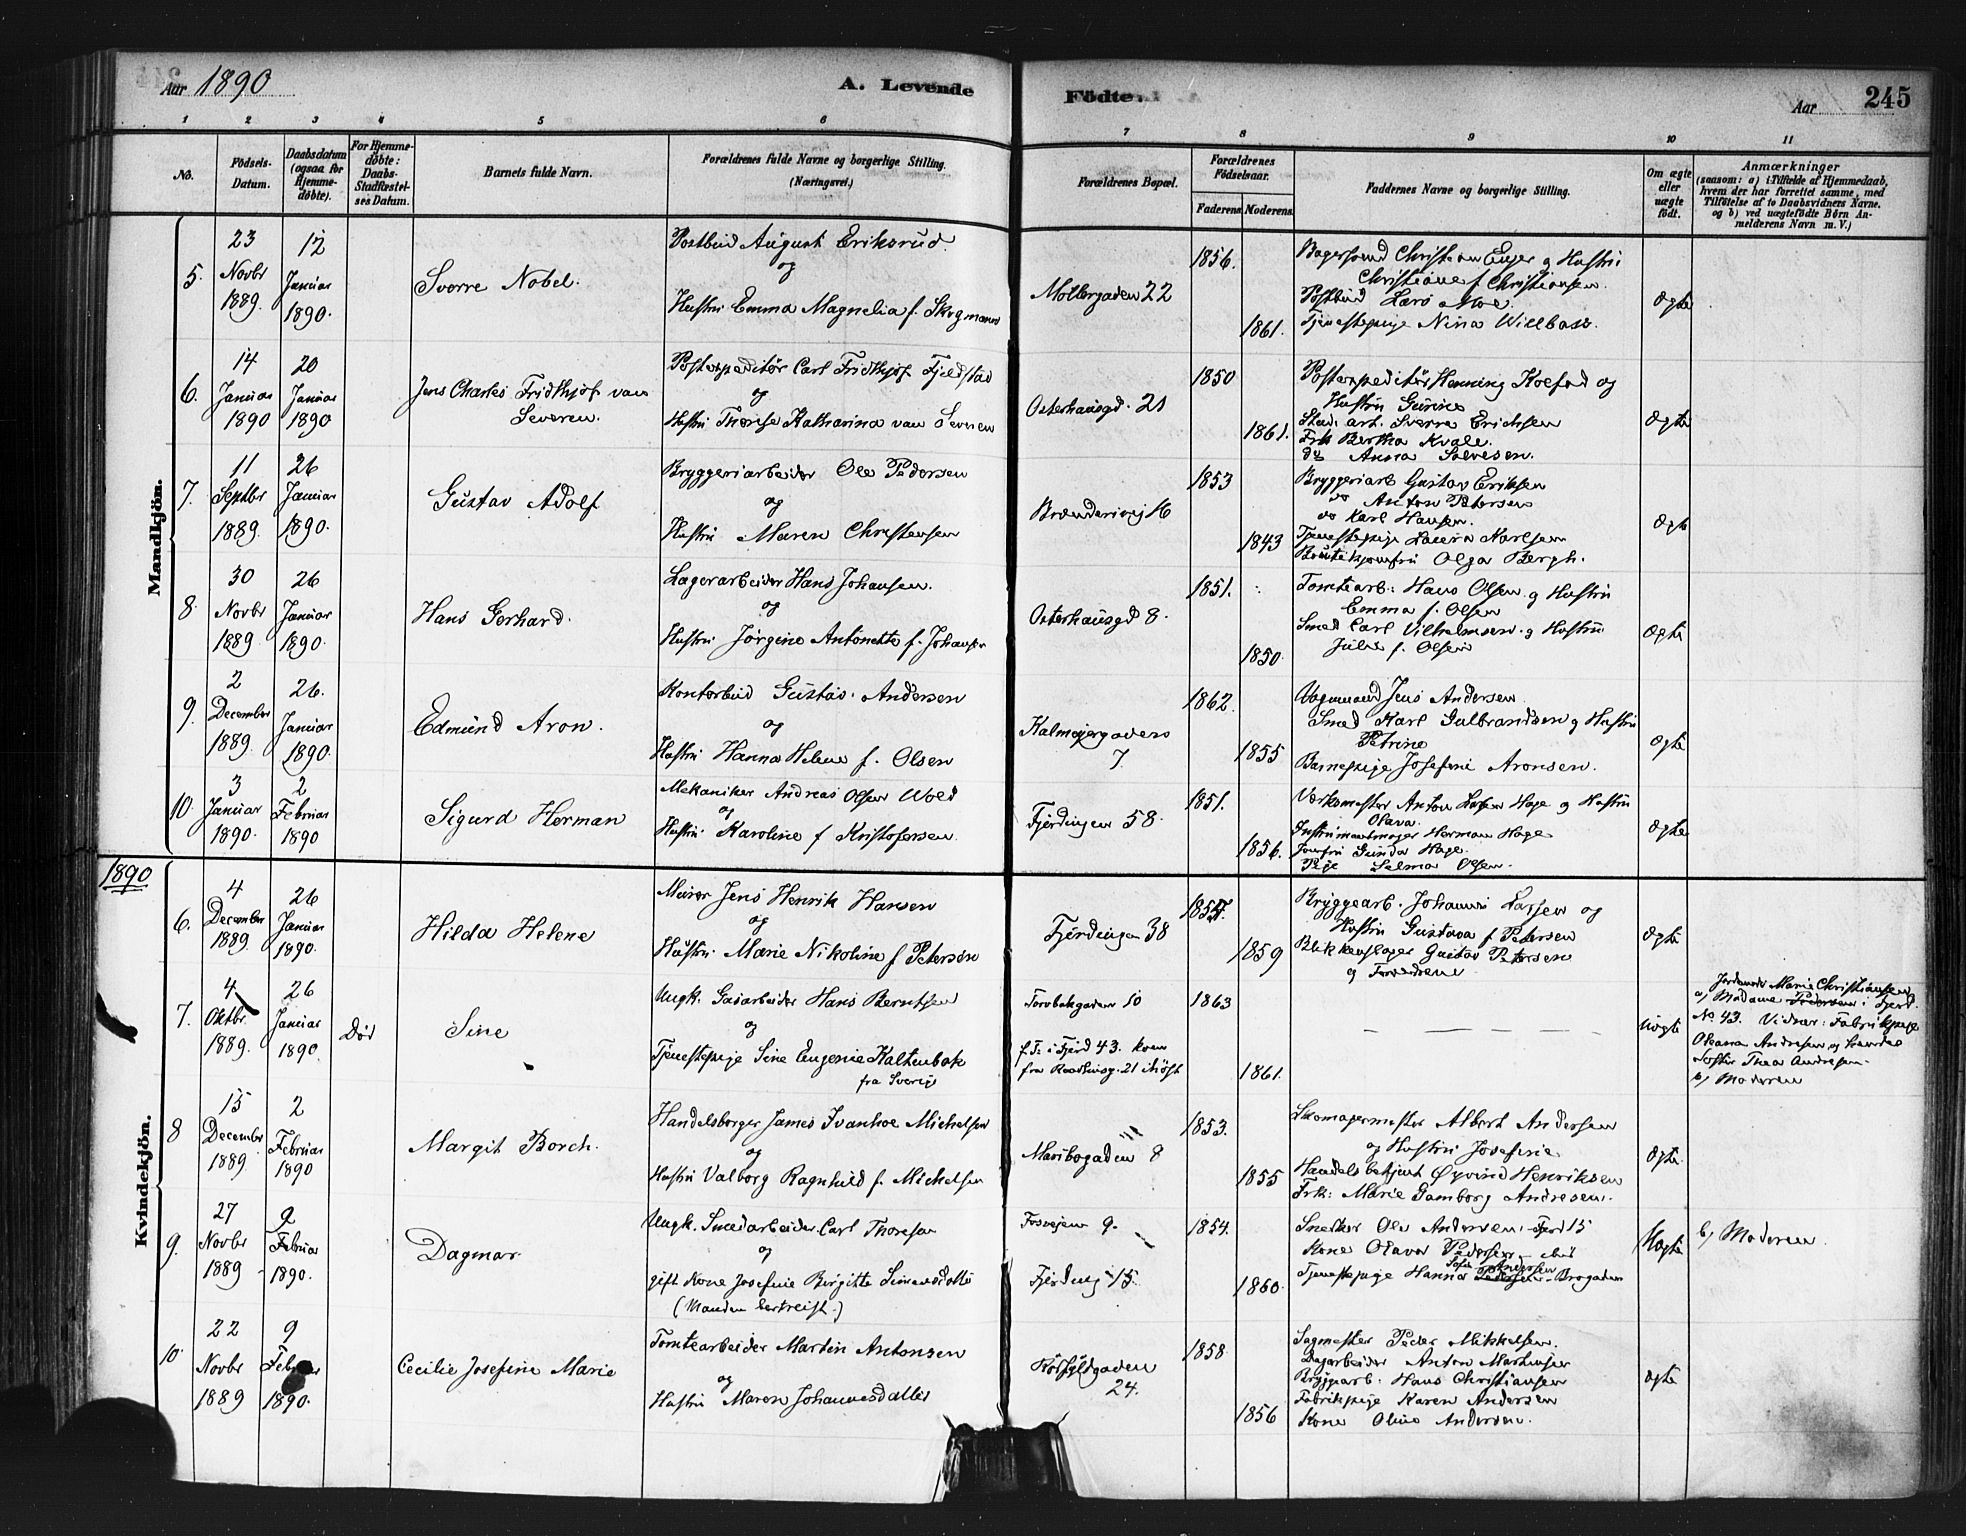 Aar 1890
A. Levende
Födte.
Aar
245
1 2 3 4 5 6 7 8 9 10 11
No.
Födsels-Datum.
Daabsdatum (ogsaa for Hjemme-döbte).
For Hjemme-döbte: Daabs-Stadfæstel-ses Datum.
Barnets fulde Navn.
Forældrenes fulde Navne og borgerlige Stilling.
(Næringsvei.)
Forældrenes Bopæl.
Forældrenes Födselsaar.
Faderens Moderens
Faddernes Navne og borgerlige Stilling.
Om ægte eller uægte födt.
Anmærkninger
(saasom: a) i Tilfælde af Hjemmedaab,
hvem der har forrettet samme, med
Tilföielse af to Daabsvidners Navne.
og b) ved uægtefödte Börn An-
melderens Navn m. V.)
Mandkjön.
5. 23 Novbr 1889. 12 Januar 1890.
Sverre Nobel.
Postbud August Eriksrud
og
Hustru Emma Magnelia f. Skogmann
Møllergaden 22
1856.
1861.
Christian Enger og Hustru
Christiane f. Christiansen.
Postbud Lars Moe.
Tjenestepige Nina Willbass.
Ægte
6. 14 Januar 1890 20 Januar 1890
Jens Charles Fridthjof van
Severen.
Postexpeditør Carl Fridthjof Fjeldstad
og
Hustru Therese Katharina van Severen
Osterhausgd. 21
1850
1861.
Postexpeditør Henning Koefod og
Hustru Gurine
Stud. art. Sverre Erichsen
Frk Bertha Kvale.
do Anna Salvesen.
Ægte
7. 11 Septbr 1889. 26 Januar 1890.
Gustav Adolf
Bryggeriarbeider Ole Pedersen
og
Hustru Maren Christensen
16
1853
1843
Bryggeriarb Gustav Eriksen
do Anton Petersen
do Karl Hansen.
Tjenestepige Laura Karlsen
Olga Bergh.
Ægte
8. 30 Novbr 1889. 26 Januar 1890.
Hans Gerhard.
Lagerarbeider Hans Johansen.
og
Hustru Jørgine Antonette f. Johansen
Osterhausgd 8.
1851.
1850.
Tomtearb: Hans Olsen og Hustru
Emma f. Olsen
Smed Carl Vilhelmsen og Hustru
Julie f. Olsen
Ægte
9. 2 December 1889. 26. Januar 1890.
Edmund Aron.
Kontorbud Gustav Andersen
og
Hustru Hanna Helene f. Olsen
Kalmeyergaden
7.
1862.
1855
Vognmand Jens Andersen
Smed Karl Gulbrandsen og Hustru
Petrine
Barnepige Josefine Aronsen.
Ægte
10. 3 Januar 1890. 2 Februar 1890
Sigurd Herman
Mekaniker Andreas Olsen Wold
og
Hustru Karoline f Kristofersen.
Fjerdingen 58.
1851.
1856.
Værksmester Anton Larsen Hage og Hustru
Olava.
Instrumentmager Herman Hage
Jomfru Gunda Hage.
Pige Selma Olsen.
Ægte
1890
Kvindekjön.
6. 4 December 1889. 26 Januar 1890.
Hilda Helene
Murer Jens Henrik Hansen
og
Hustru Marie Nikoline f Petersen
Fjerdingen 38
1859
Bryggearb. Johannes Larsen og
Hustru Gustava f Petersen
Blikkenslager Gustav Petersen
og Forældrene
Ægte
7. 4 Oktbr. 1889. 26 Januar 1890.
Død
Sine
Ungk. Gasarbeider Hans Berntsen
og
Tjenestepige Sine Eugenie Kaltenbak
fra Sverige
Torvbakgaden 10
f. T. i Fjerd 43. kom
fra Raadhusg. 21 i Høst
1863
1861.
— — — —
Uægte
Jordemor Marie Christiansen
a) Madame Pedersen i Fjerd.
No 43. Vidner: Fabrikpige
Oleana Andresen og hendes
Søster Thea Andresen.
b) Moderen
8 15 December 1889. 2 Februar 1890
Margit Borch.
Handelsborger James Ivanhoe Michelsen
og
Hustru Valborg Ragnhild f. Michelsen
Maribogaden 8
1853.
1855
Skomagermester Albert Andersen
og Hustru Josefine
Handelsbetjent Øyvind Henriksen
Frk: Marie Gamborg Andresen.
Ægte
9. 27 Novbr 1889 9 Februar 1890.
Dagmar.
Ungk. Smedarbeider Carl Thoresen
og
gift Kone Josefine Birgitte Simensdatter
(Manden bortreist.)
Fosvejen 9.
Fjerding 15.
1854.
1860.
Snedker Ole Andersen. Fjerd 15
Kone Olava Pedersen
Sofie Andersen
Tjenestepige Hanna Pedersen. Brogaden
Uægte
b) Moderen.
10 22 Novbr 1889 9 Februar 1890.
Cecilie Josefine Marie
Tomtearbeider Martin Antonsen
og
Hustru Maren Johannesdatter
Rørfyldgaden
24.
1858.
1856
Sagmester Peder Mikkelsen.
Dagarbeider Anton Martinsen
Bryggearb. Hans Christiansen
Fabrikpige Karen Andersen
Kone Oline Andersen.
Ægte